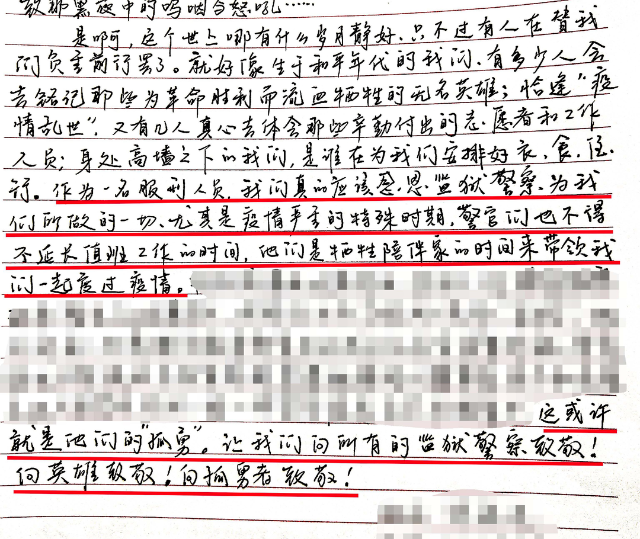 致那黑夜中的呜咽与怒吼……
是啊，这个世上哪有什么岁月静好，只不过有人在替我
们负重前行罢了。就好像生于和平年代的我们，有多少人会
去铭记那些为革命胜利而流血牺牲的无名英雄；恰逢“疫
情乱世”，又有几人真心去体会那些辛勤付出的志愿者和工作
人员；身处高墙之下的我们，是谁在为我们安排好衣、食、住、
行。作为一名服刑人员，我们真的应该感恩监狱警察为我
们所做的一切、尤其是疫情严重的特殊时期，警官们也不得
不延长值班工作的时间，他们是牺牲陪伴家的时间来带领我
们一起度过疫情。
这或许
就是他们的“孤勇”。让我们向所有的监狱警察致敬！
向英雄致敬！向孤勇者致敬！